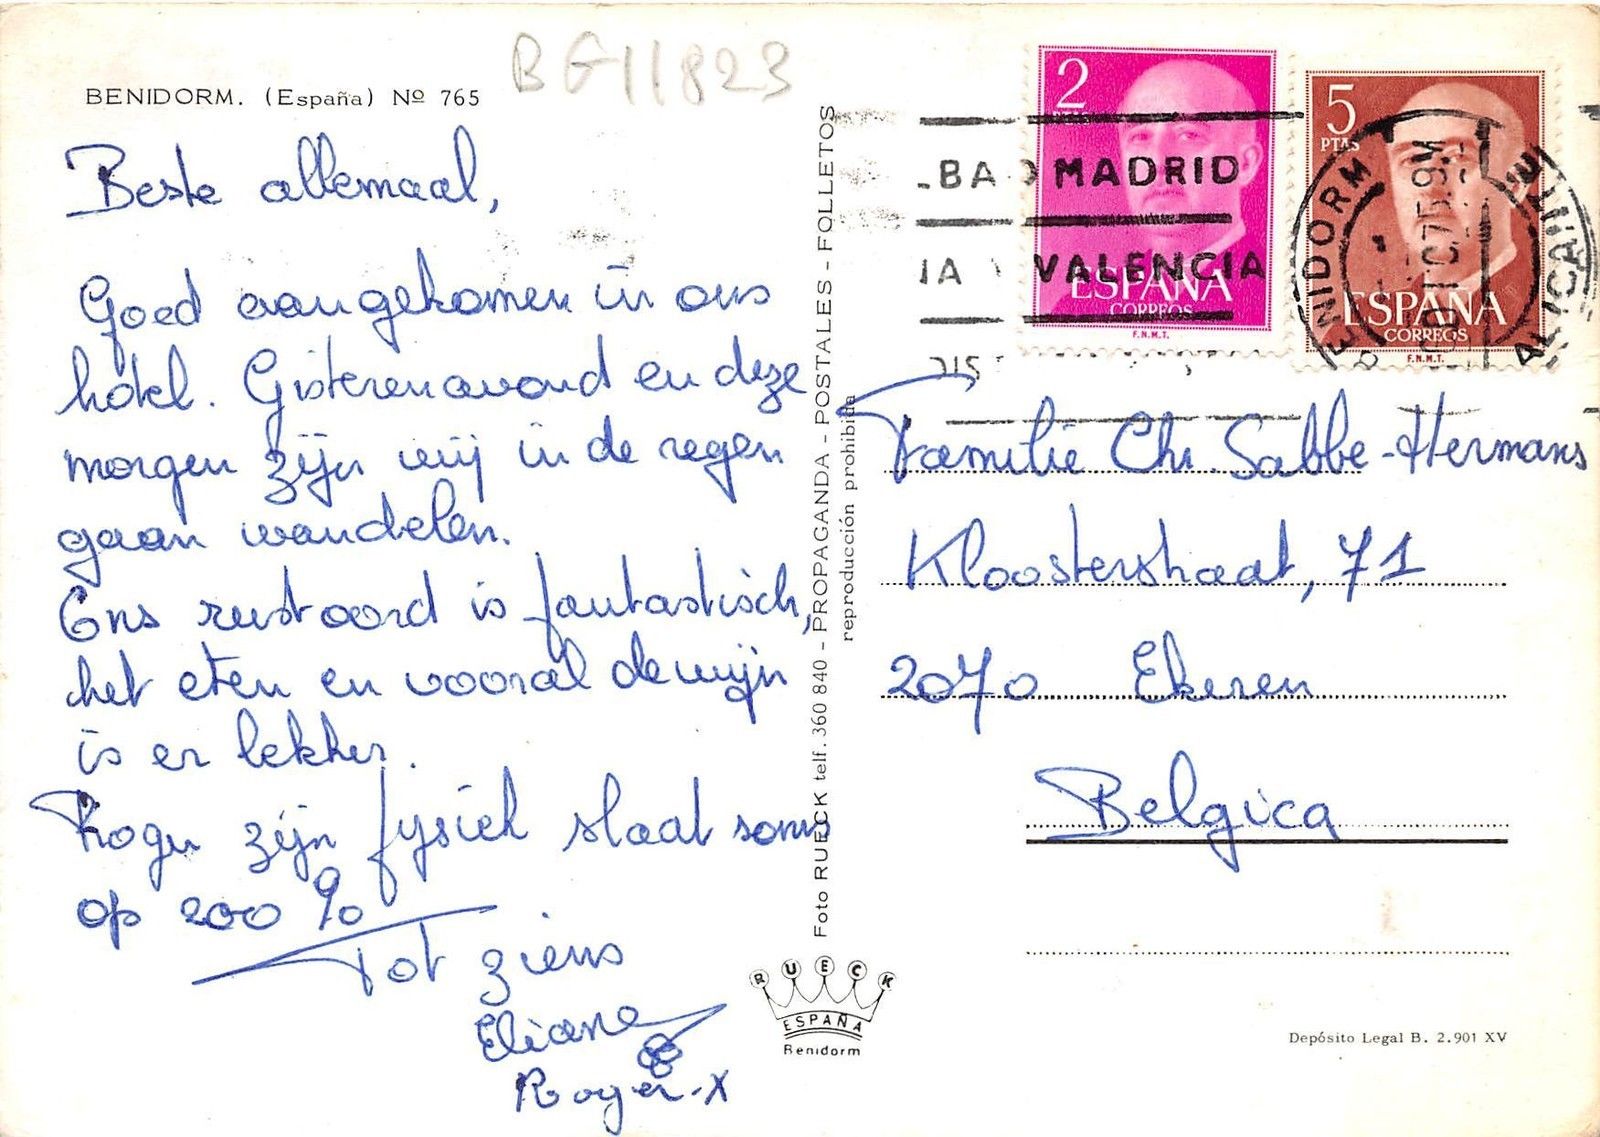 BG11823
BENIDORM. (España) Nº 765
Beste allemaal,
Goed aangekomen in ons
hotel. Gisterenavond en deze
morgen zijn wij in de regen
gaan wandelen.
Ons rustoord is fantastisch,
het eten en vooral de wijn
is er lekker.
Roger zijn fysiek staat soms
op 200 %
Tot ziens
Eliane
Roger-X
Foto RUECK telf. 360 840 - PROPAGANDA - POSTALES - FOLLETOS
reproducción prohibida
RUECK
ESPAÑA
Benidorm
2
PTAS
ESPAÑA
CORREOS
F.N.M.T.
5
PTAS
ESPAÑA
CORREOS
F.N.M.T.
MADRID
VALENCIA
BENIDORM
ALICANTE
Familie Chr. Sabbe-Hermans
Kloosterstraat, 71
2070 Ekeren
Belgica
Depósito Legal B. 2.901 XV